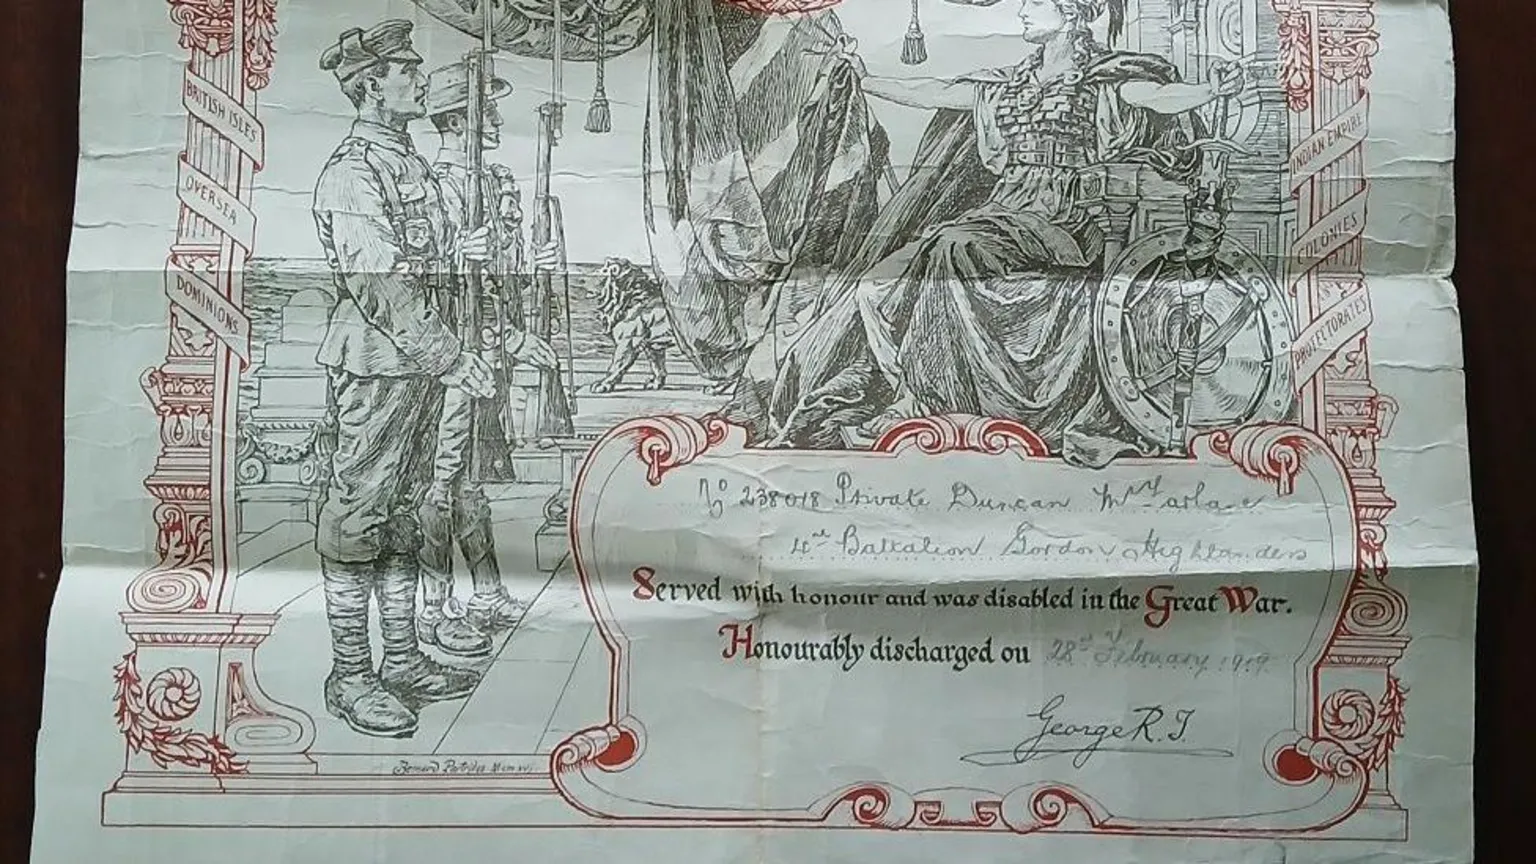 BRITISH ISLES
OVERSEA
DOMINIONS
INDIAN EMPIRE
COLONIES
PROTECTORATES
No 238018 Private Duncan McFarlane
4th Battalion Gordon Highlanders
Served with honour and was disabled in the Great War.
Honourably discharged on 28th February 1919
George R.I.
Bernard Partridge